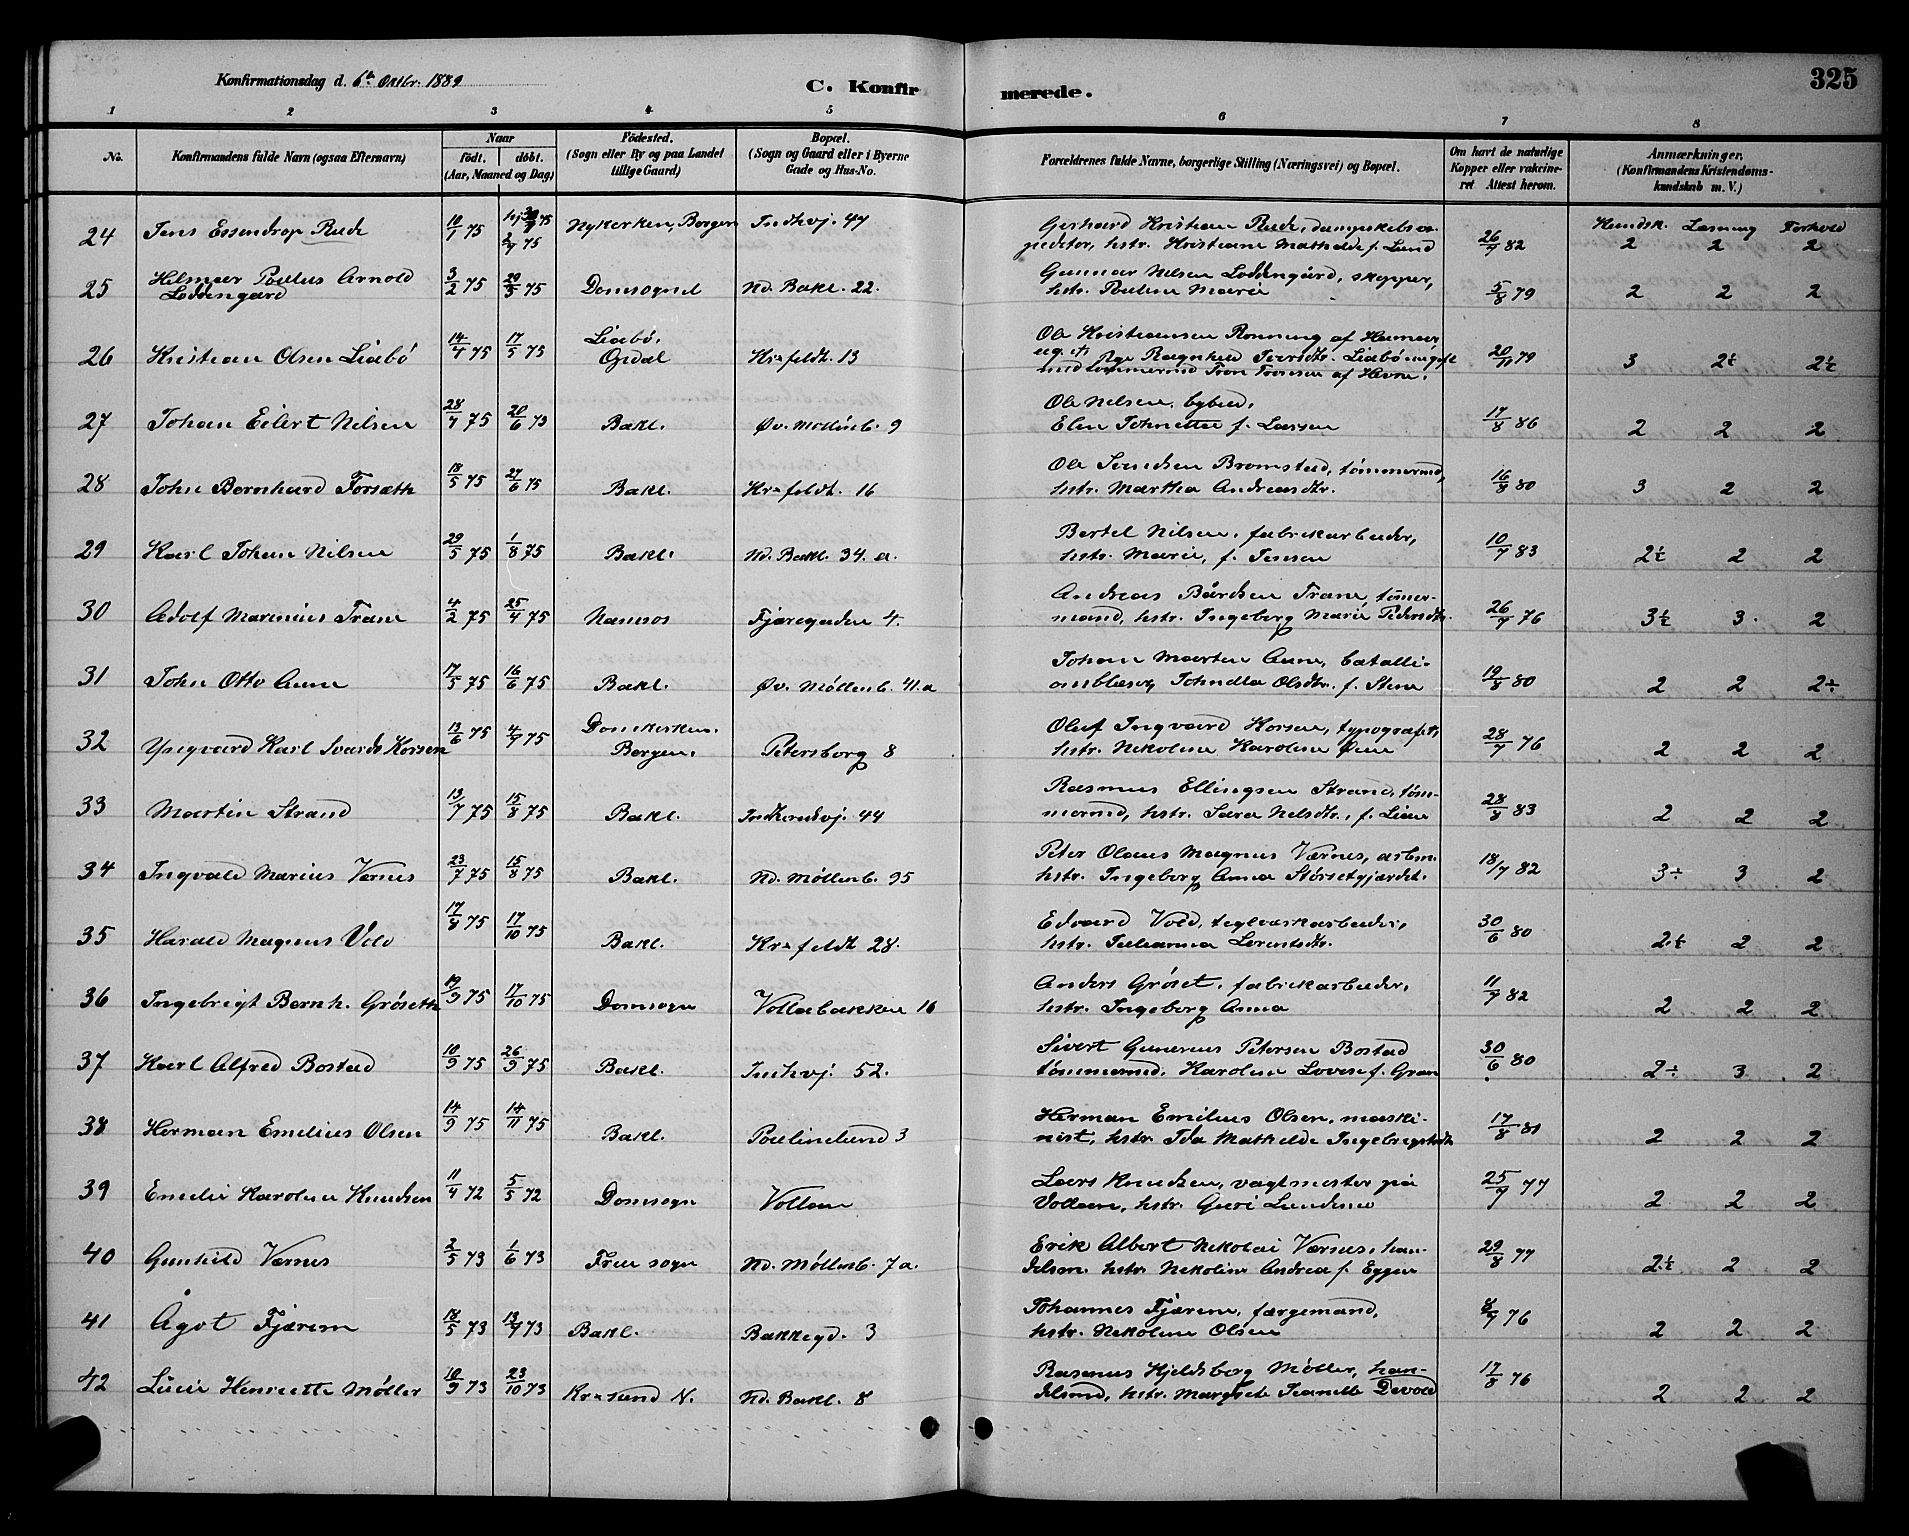 325
Konfirmationsdag d. 6te Oktbr. 1889
C. Konfirmerede.
1 2 3 4 5 6 7 8
No. Konfirmandens fulde Navn (ogsaa Efternavn) Naar født. døbt. (Aar, Maaned og Dag) Fødested. (Sogn eller By og paa Landet tillige Gaard) Bopæl. (Sogn og Gaard eller i Byerne Gade og Hus-No. Forældrenes fulde Navne, borgerlige Stilling (Næringsvei) og Bopæl. Om havt de naturlige Kopper eller vakcineret Attest herom. Anmærkninger. (Konfirmandens Kristendomskundskab m. V.)
Kundsk. Læsning Forhold
24 Jens Essendrop Rude 10/1 75 2/9 75 Nykerken, Bergen Indhvj. 47 Gerhard Kristian Rude, dampskebsex-
pedetør, hstr. Kristiane Mathilde f. Lund 26/7 82 2 2 2
25 Helmer Poulus Arnold
Loddengård 3/2 75 29/3 75 Domsognet Nd. Bakl. 22. Gunnar Nilsen Loddengård, skepper,
hstr. Pouline Marie 5/8 79 2 2 2
26 Kristian Olsen Liabø 14/4 75 17/5 75 Liabø,
Opdal Kr=feldt. 13 Ole Kristiansen Rønning af
ug. Pge Ragnhild Liabø nu gift
med tømmermd af Hevne. 20/11 79 3 2÷ 2÷
27 Johan Eilert Nilsen 28/4 75 20/6 75 Bakl. Øv. Møllenb. 9 Ole Nilsen, bybud,
Elen Johnette f. Larsen 17/8 86 2 2 2
28 John Bernhard Forsæth 18/5 75 27/6 75 Bakl. Kr=feldt. 16 Ole Bromstad, tømmermd,
hstr. Martha Andreasdtr. 16/8 80 3 2 2
29 Karl Johan Nilsen 29/5 75 1/8 75 Bakl. Nd. Bakl. 34. a. Bertel Nilsen, fabrikarbeider,
hstr. Marie, f. Jensen 10/7 83 2÷ 2 2
30 Adolf Marinius Trane 4/2 75 25/4 75 Namsos Fjæregaden 4. Andreas Bårdsen Trane, tømer-
mand, hstr. Ingeborg Marie Pedersdtr. 26/7 76 3÷ 3. 2
31 John Otto Aune 17/5 75 16/6 75 Bakl. Øv. Møllenb. 41.a Johan Marten Aune, batalli-
onsblæser, Johndla Olsdtr. f. Stene 19/8 80 2 2 2÷
32 Yngvard Karl Korsen 13/6 75 4/7 75 Domkerken.
Bergen. Petersborg 8 Oluf Ingvard Korsen, typograf,
hstr. Nekoline Karoline Øien 28/7 76 2 2 2
33 Martin Strand 13/7 75 15/8 75 Bakl. Indherredvj. 44 Rasmus Ellingsen Strand, tøm-
mermd, hstr. Sara Nelsdtr., f. Lian 28/8 83 2 2 2
34 Ingvald Marius Værnes 23/7 75 15/8 75 Bakl. Nd. Møllenb. 35 Peter Olaus Magnus Værnes, arbm.
hstr. Ingeborg Anna Størsetgjærdet. 18/7 82 3÷ 3 2
35 Harald Magnus Vold 17/8 75 17/10 75 Bakl. Kr=feldt 28. Edvard Vold, teglværkarbeider,
hstr. Julianna Lorentsdtr. 30/6 80 2÷ 2 2
36 Ingebrigt Bernh. Grøseth 19/9 75 17/10 75 Domsogn Vollabakken 16 Anders Grøset, fabrikarbeider,
hstr. Ingeborg Anna 11/7 82 2 2 2
37 Karl Alfred Bostad 10/9 75 26/9 75 Bakl. Indhvj. 52. Sivert Gunerius Petersen Bostad
tømmermd, Karoline Lovise f. Gran 30/6 80 2÷ 3 2
38 Herman Emilius Olsen 14/9 75 14/11 75 Bakl. Poulinelund 3 Herman Emilius Olsen, maski-
nist, hstr. Ida Mathilde Ingebrigtsdtr. 17/8 81 2 2 2
39 Emelie Karoline Knudsen 11/4 72 5/5 72 Domsogn Vollan Lars Knudsen, vagtmester på
Vollan, hstr. Guri Lundemo 25/7 77 2 2 2
40 Gunhild Værnes 2/5 73 1/6 73 Frue sogn Nd. Møllenb. 7a. Erik Albert Nekolai Værnes, han-
delsm. hstr. Nekoline Andrea f. Eggen 29/8 77 2÷ 2 2
41 Ågot Fjærem 18/5 73 13/7 73 Bakl. Bakkegd. 3 Johannes Fjærem, færgemand,
hstr. Nekoline Olsen 4/7 76 2 2 2
42 Lucie Henriette Møller 10/9 73 23/10 73 Kr=sund N. Nd. Bakl. 8 Rasmus Hjeldsborg Møller, han-
delsmd, hstr. Margrete Jeanette Devold 17/8 76 2 2 2